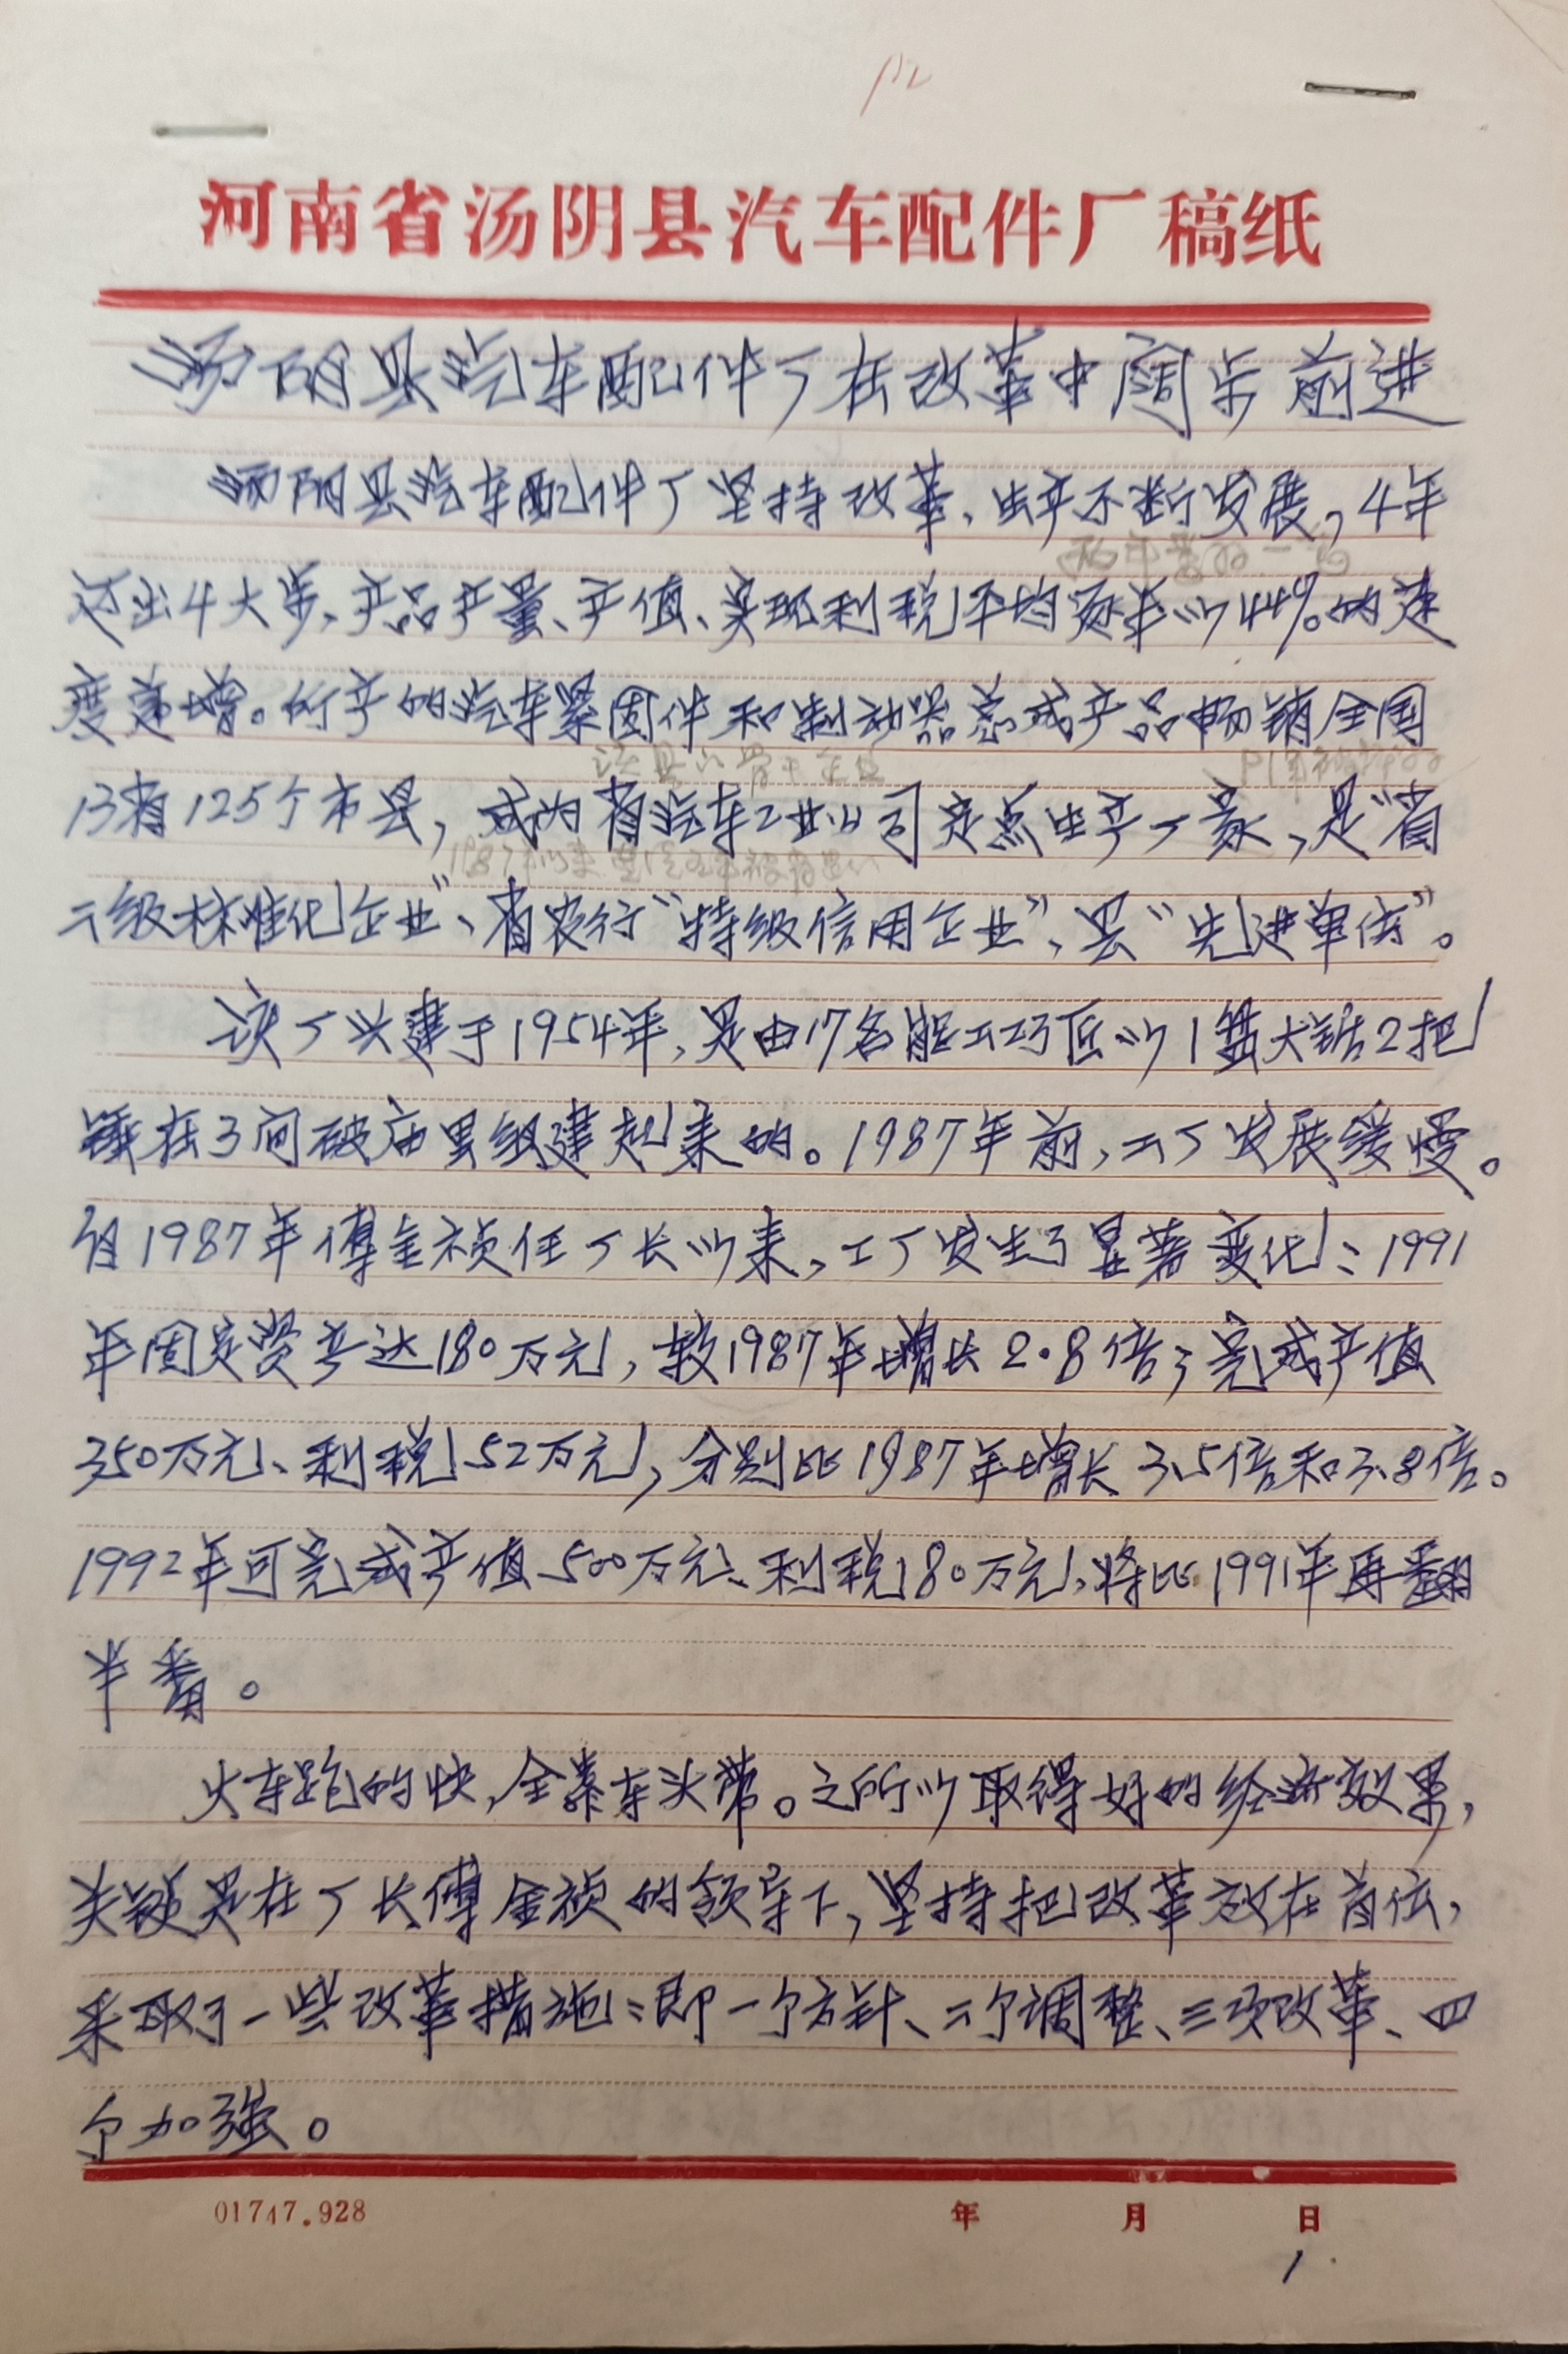 河南省汤阴县汽车配件厂稿纸
汤阴县汽车配件厂在改革中阔步前进
汤阴县汽车配件厂坚持改革、生产不断发展，4年
迈出4大步、产品产量、产值、实现利税平均逐年以44%的速
度递增。所产的汽车紧固件和制动器总成产品畅销全国
13省125个市县，成为省汽车工业公司定点生产厂家，是“省
二级标准化企业”、省农行“特级信用企业”、县“先进单位”。
该厂兴建于1954年，是由17名能工巧匠以1盘大锯2把
锤在3间破庙里组建起来的。1987年前，工厂发展缓慢。
自1987年傅金祯任厂长以来，工厂发生了显著变化：1991
年固定资产达180万元，较1987年增长2.8倍；完成产值
350万元、利税52万元，分别比1987年增长3.5倍和3.8倍。
1992年可完成产值500万元、利税80万元，将比1991年再翻
半番。
火车跑的快，全靠车头带。之所以取得好的经济效果，
关键是在厂长傅金祯的领导下，坚持把改革放在首位，
采取了一些改革措施：即一个方针、二个调整、三项改革、四
个加强。
01747.928 年 月 日
1